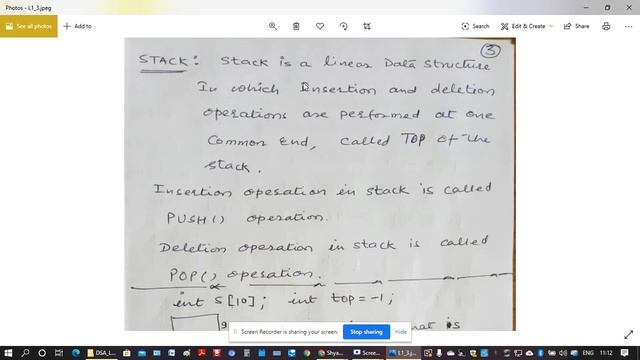 Photos - L1_3.jpeg
See all photos
+ Add to
Search
Edit & Create
Share
3
STACK: Stack is a linear Data Structure
In which Insertion and deletion
operations are performed at one
Common End, called TOP of the
stack.
Insertion operation in stack is called
PUSH() operation.
Deletion operation in stack is called
POP() operation.
int S[10]; int top = -1;
is
Screen Recorder is sharing your screen
Stop sharing
Hide
DSA_L...
Shya...
Scree...
L1_3.jpeg
ENG
11:12